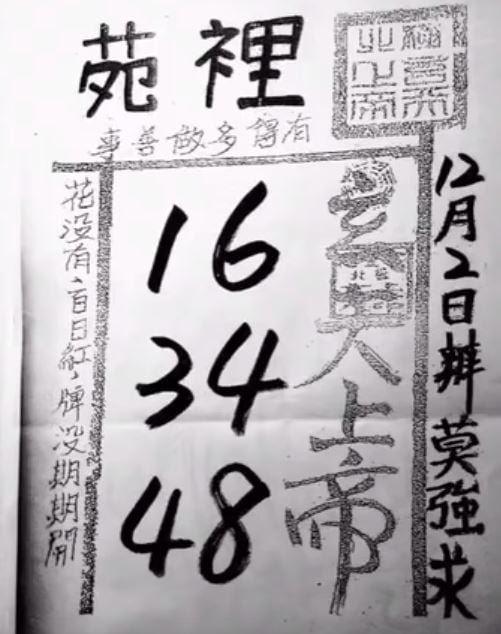 苑裡
有多做善事
12月2日辦莫強求
玄天上帝
16
34
48
花没有百日紅，牌没期期開